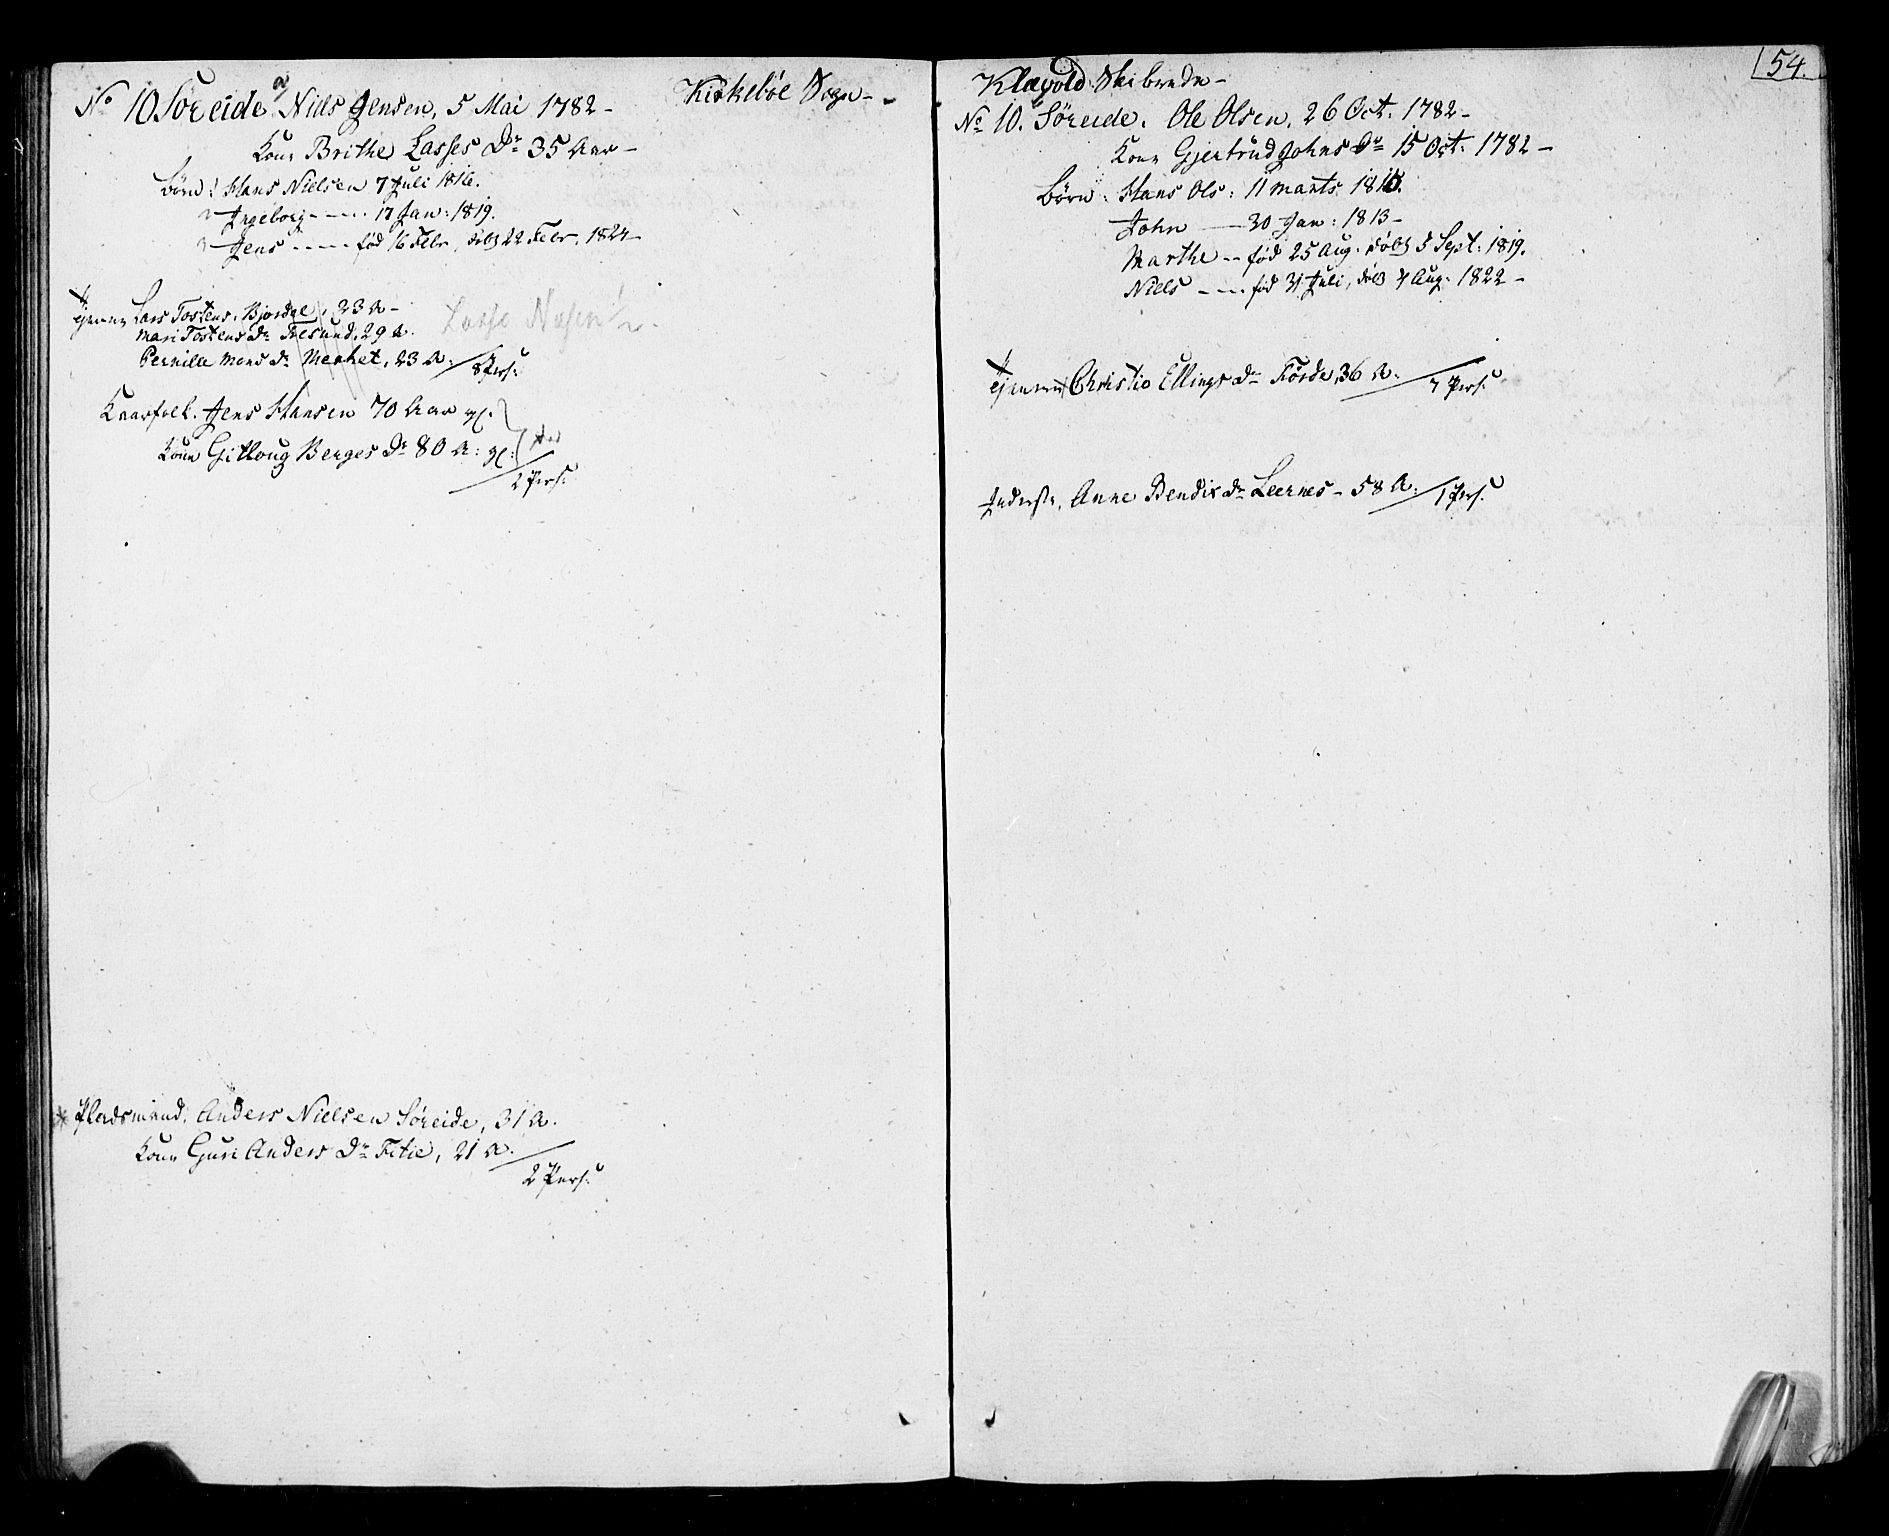 Kirkeböe Sogn -
No 10 Söreide Niels Jensen, 5 Mai 1782 -
Kone Brithe Lasses Dr 35 Aar -
börn: Hans Nielsen 7 Juli 1816.
Ingeborg - - - . 17 Jan: 1819.
Jens - - - - - föd 16 Febr. döbt 22 Febr. 1824 -
Tjenere Lars Tostens. Bjordal, 33 A -
Mari Tostens Dr Tresund, 29 A.
Pernille Mons Dr Menhet, 23 A.
8 Pers:
Kaarfolk. Jens Hansen 70 Aar gl.
Kone Gitloug Berges Dr 80 A: gl:
2 Pers:
Pladsmand. Anders Nielsen Söreide, 31 A.
Kone Guri Anders Dr Fetie, 21 A.
2 Pers:
54.
Klævold Skibrede -
No 10. Söreide. Ole Olsen, 26 Oct. 1782 -
Kone Gjertrud Johns Dr 15 Oct. 1782 -
Börn: Hans Ols: 11 Marts
John — 30 Jan: 1813 -
Marthe - - föd 25 Aug. döbt 5 Sept: 1819.
Niels - - - . föd 31 Juli, döbt 4 Aug. 1822 -
Tjenere Christie Ellings Dr Förde, 36 A.
7 Pers:
Inderste, Anne Bendix Dr Leernes - 58 A.
1 Pers: